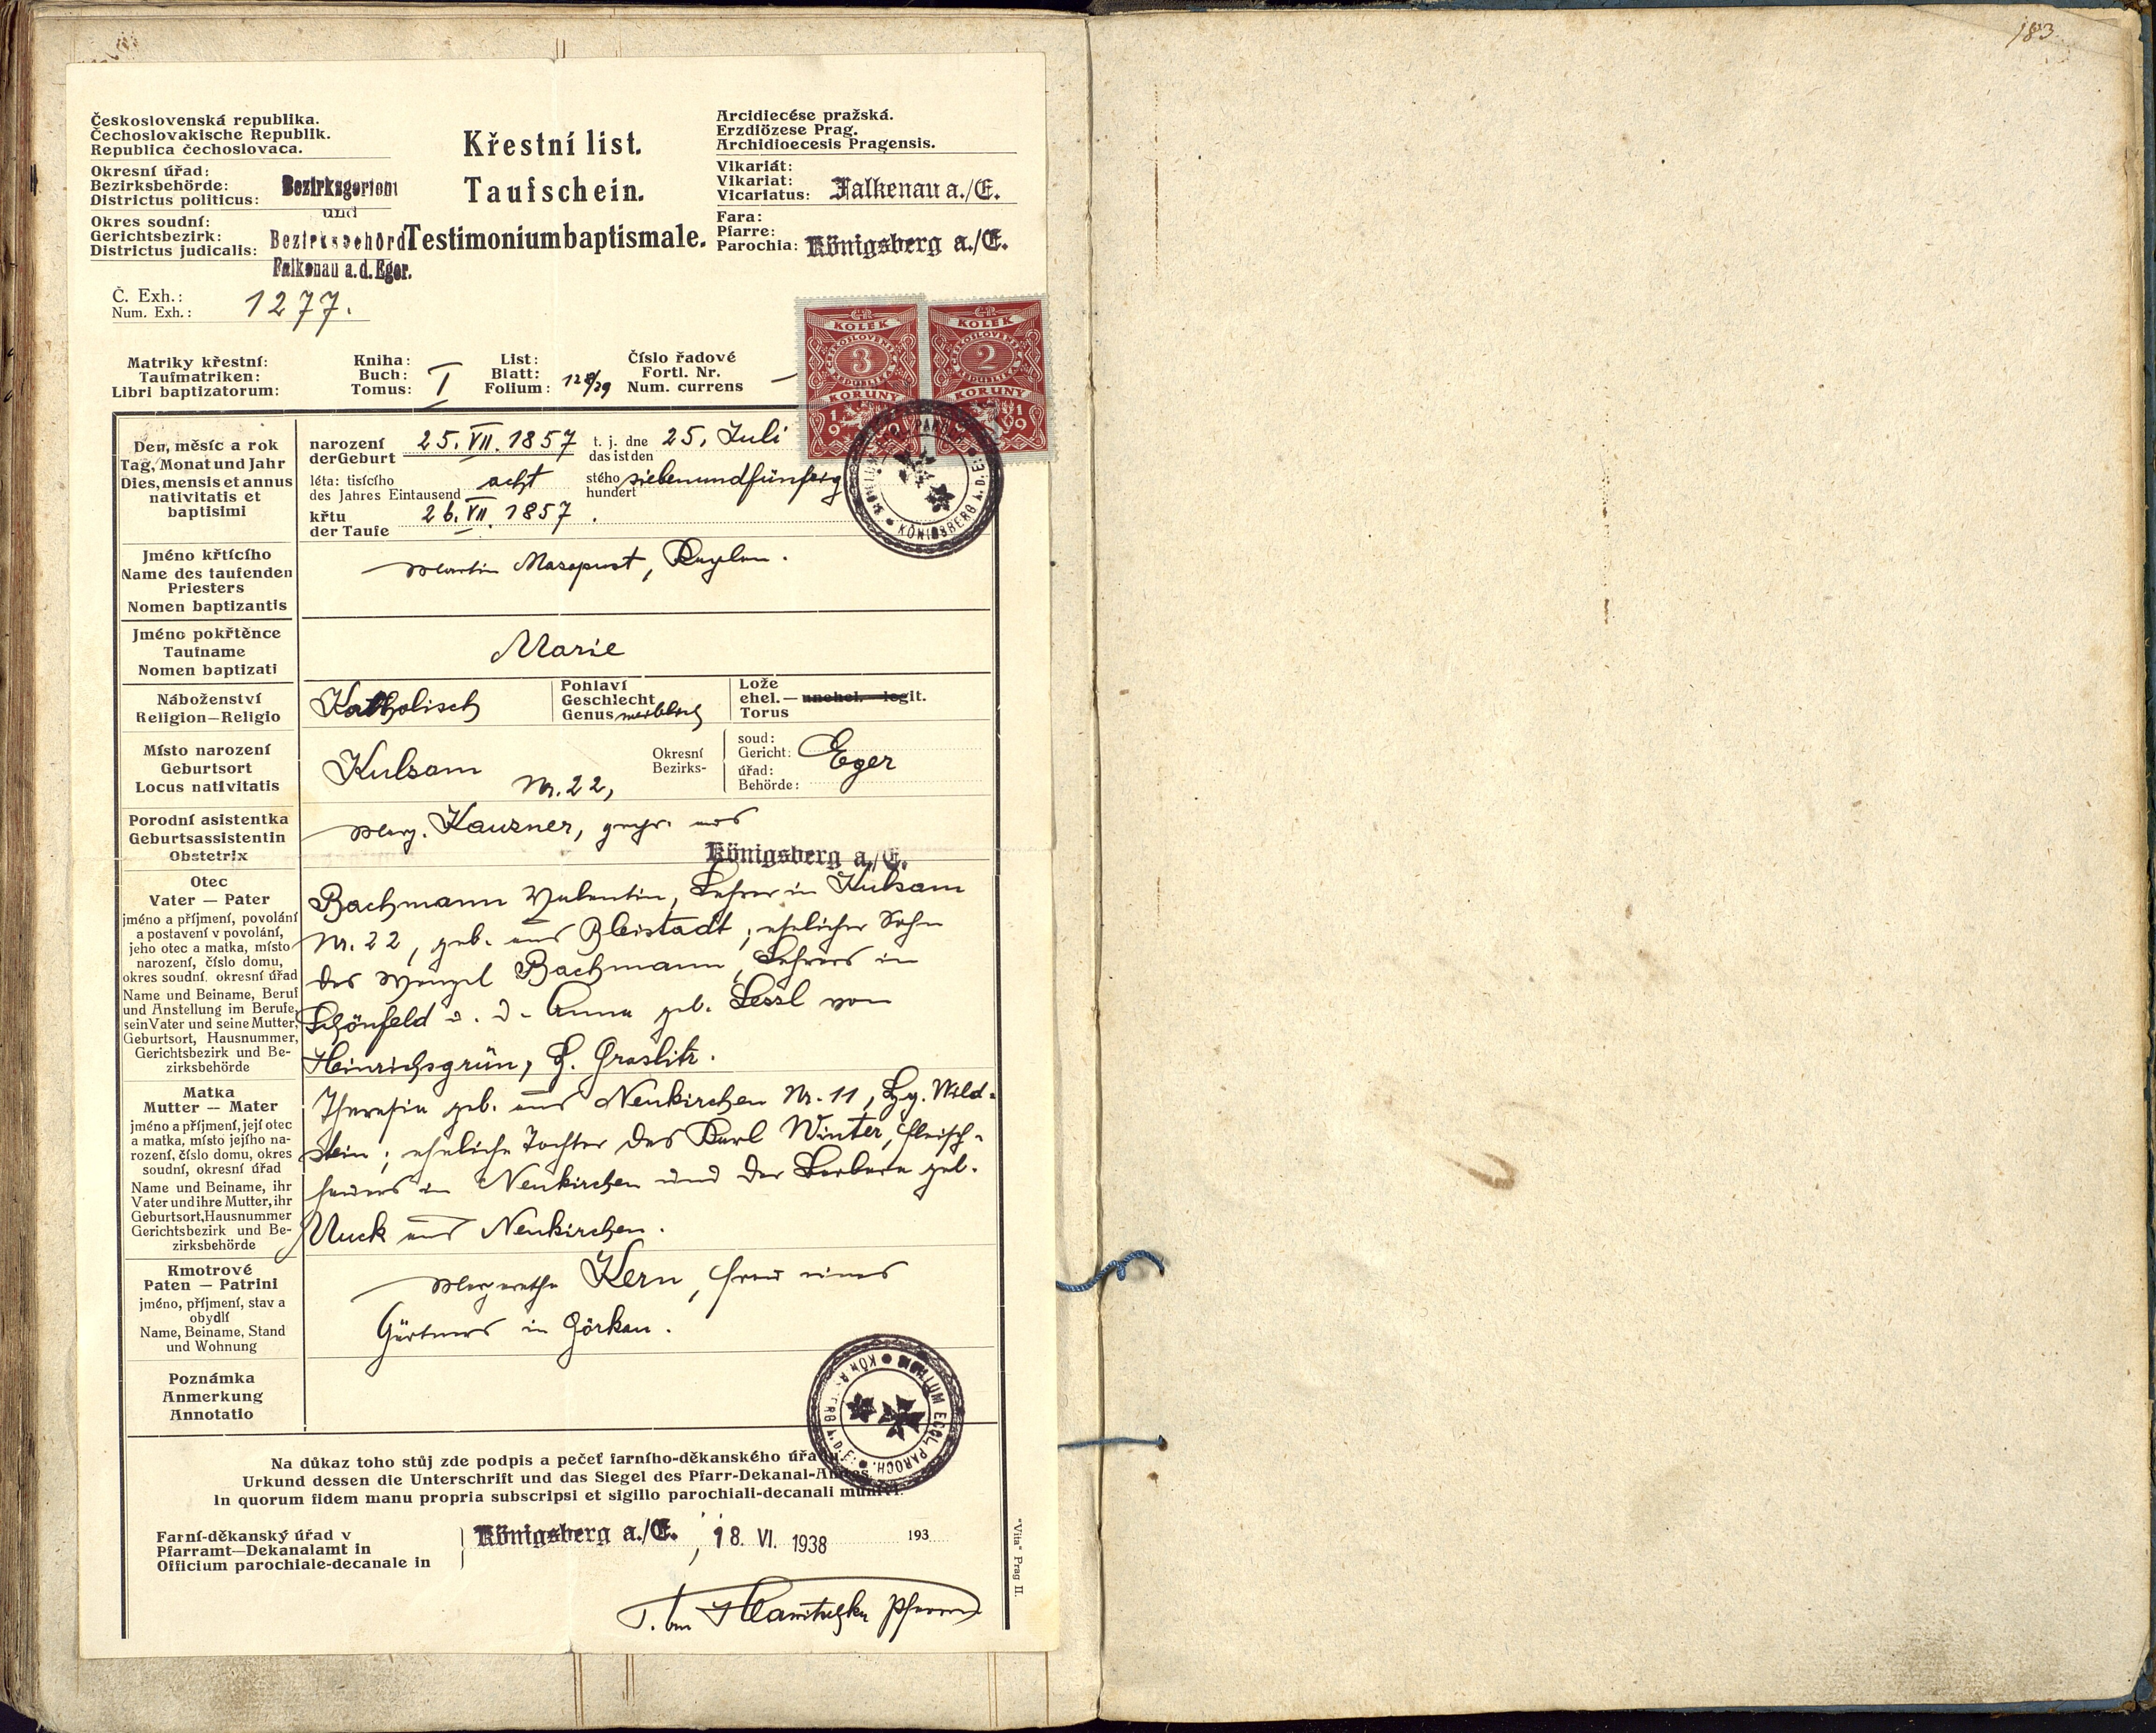 183
Československá republika.
Čechoslovakische Republik.
Republica čechoslovaca.
Okresní úřad:
Bezirksbehörde:
Districtus politicus:
Bezirksgericht
und
Okres soudní:
Gerichtsbezirk:
Districtus judicalis:
Bezirksbehörde
Falkenau a.d.Eger.
Č. Exh.:
Num. Exh.:
1277.
Křestní list.
Taufschein.
Testimonium baptismale.
Arcidiecése pražská.
Erzdiözese Prag.
Archidioecesis Pragensis.
Vikariát:
Vikariat:
Vicariatus:
Falkenau a./E.
Fara:
Pfarre:
Parochia:
Königsberg a./E.
Matriky křestní:
Taufmatriken:
Libri baptizatorum:
Kniha:
Buch:
Tomus:
I
List:
Blatt:
Folium:
128/29
Číslo řadové
Fortl. Nr.
Num. currens
—
ČR
KOLEK
ČESKOSLOVENSKÁ
3
REPUBLIKA
KORUNY
ČR
KOLEK
ČESKOSLOVENSKÁ
2
REPUBLIKA
KORUNY
1919
KÖNIGSBERG A.D.E.
Den, měsíc a rok
Tag, Monat und Jahr
Dies, mensis et annus
nativitatis et
baptisimi
narození
der Geburt
25. VII. 1857
t. j. dne
das ist den
25. Juli
léta: tisícího
des Jahres Eintausend
acht
stého
hundert
siebenundfünfzig
křtu
der Taufe
26. VII. 1857.
Jméno křtícího
Name des taufenden
Priesters
Nomen baptizantis
Martin Masopust, Kaplan.
Jméno pokřtěnce
Taufname
Nomen baptizati
Marie
Náboženství
Religion—Religio
Katholisch
Pohlaví
Geschlecht
Genus
weiblich
Lože
ehel. — unehel. — legit.
Torus
Místo narození
Geburtsort
Locus nativitatis
Kulsam
Nr. 22,
Okresní
Bezirks-
soud:
Gericht:
úřad:
Behörde:
Eger
Porodní asistentka
Geburtsassistentin
Obstetrix
Marg. Kauzner, gepr. aus
Königsberg a./E.
Otec
Vater — Pater
jméno a příjmení, povolání
a postavení v povolání,
jeho otec a matka, místo
narození, číslo domu,
okres soudní, okresní úřad
Name und Beiname, Beruf
und Anstellung im Berufe,
sein Vater und seine Mutter,
Geburtsort, Hausnummer,
Gerichtsbezirk und Be-
zirksbehörde
Bachmann Valentin, Lehrer in Kulsam
Nr. 22, geb. aus Bleistadt; ehelicher Sohn
des Wenzel Bachmann, Lehrers in
Schönfeld u. d. Anna geb. Lessl von
Heinrichsgrün, B. Graslitz.
Matka
Mutter — Mater
jméno a příjmení, její otec
a matka, místo jejího na-
rození, číslo domu, okres
soudní, okresní úřad
Name und Beiname, ihr
Vater und ihre Mutter, ihr
Geburtsort, Hausnummer
Gerichtsbezirk und Be-
zirksbehörde
Theresia geb. aus Neukirchen Nr. 11, Bg. Wild-
stein; eheliche Tochter des Karl Winter, Fleisch-
hauers in Neukirchen und der Barbara geb.
Uuck aus Neukirchen.
Kmotrové
Paten — Patrini
jméno, příjmení, stav a
obydlí
Name, Beiname, Stand
und Wohnung
Margaretha Kern, Frau eines
Gärtners in Görkau.
Poznámka
Anmerkung
Annotatio
SIGILLUM ECCL. PAROCH. KÖNIGSBERG A.D.E.
Na důkaz toho stůj zde podpis a pečeť farního-děkanského úřadu.
Urkund dessen die Unterschrift und das Siegel des Pfarr-Dekanal-Amtes.
In quorum fidem manu propria subscripsi et sigillo parochiali-decanali munivi.
Farní-děkanský úřad v
Pfarramt—Dekanalamt in
Officium parochiale-decanale in
Königsberg a./E., 18. VI. 1938
193
Pfarrer
"Vita" Prag II.